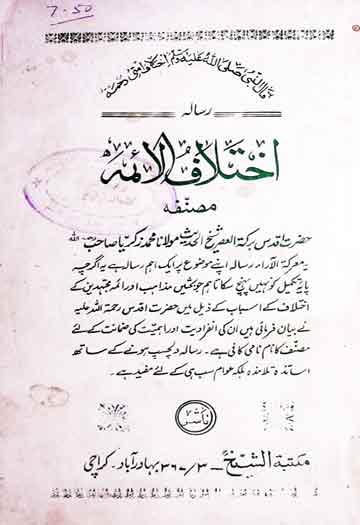 7-50
قال النبی صلی اللہ علیہ وسلم اختلاف امتی رحمۃ
رسالہ
اختلاف الائمہ
مصنفہ
حضرت اقدس برکۃ العصر شیخ الحدیث مولانا محمد زکریا صاحب رحمۃ اللہ
یہ معرکۃ الآراء رسالہ اپنے موضوع پر ایک اہم رسالہ ہے یہ اگرچہ
پایۂ تکمیل کو نہیں پہنچ سکا تاہم جو بحثیں مذاہب اور ائمہ مجتہدین کے
اختلاف کے اسباب کے ذیل میں حضرت اقدس رحمۃ اللہ علیہ
نے بیان فرمائی ہیں ان کی انفرادیت اور اہمیت کی ضمانت کے لئے
مصنف کا نام نامی کافی ہے۔ رسالہ دلچسپ ہونے کے ساتھ
اساتذہ و تلامذہ بلکہ عوام سب ہی کے لئے مفید ہے۔
ناشر
مکتبۃ الشیخ ۔ ۳/۳۶۷ بہادر آباد۔ کراچی